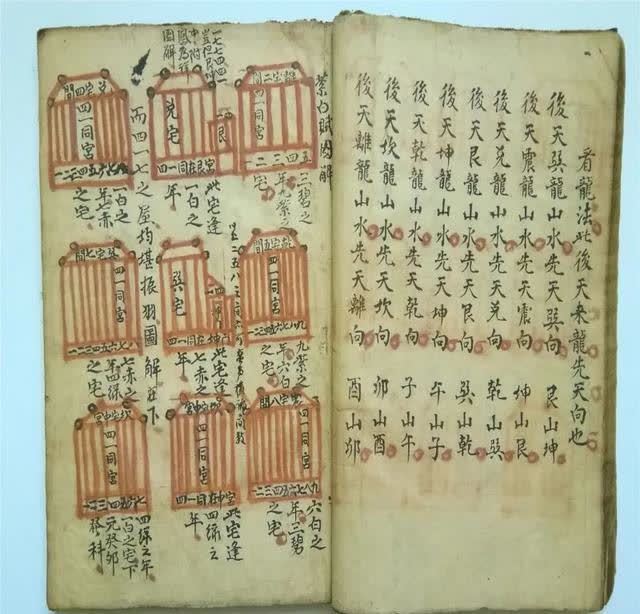 看龍法此後天來龍先天向也
後天巽龍山水先天巽向 艮山坤
後天震龍山水先天震向 坤山艮
後天兌龍山水先天兌向 乾山巽
後天艮龍山水先天艮向 巽山乾
後天坤龍山水先天坤向 午山子
後天乾龍山水先天乾向 子山午
後天坎龍山水先天坎向 卯山酉
後天離龍山水先天離向 酉山卯
紫白賦圖解
四一同宮
三碧之
年九紫之
宅
兌宅
艮
此宅逢
一白之
年
四一同宮
一白之
年七赤
之宅
而四一七之屋均堪振羽圖解在下
四一同宮
九紫之
年六白
之宅
巽宅
此宅逢
七赤之
年
四一同宮
七赤之
年四綠
之宅
四一同宮
六白之
年三碧
之宅
四一同宮
此宅逢
四綠之
年
四一同宮
四綠之年
一白之宅下
元癸卯
發科